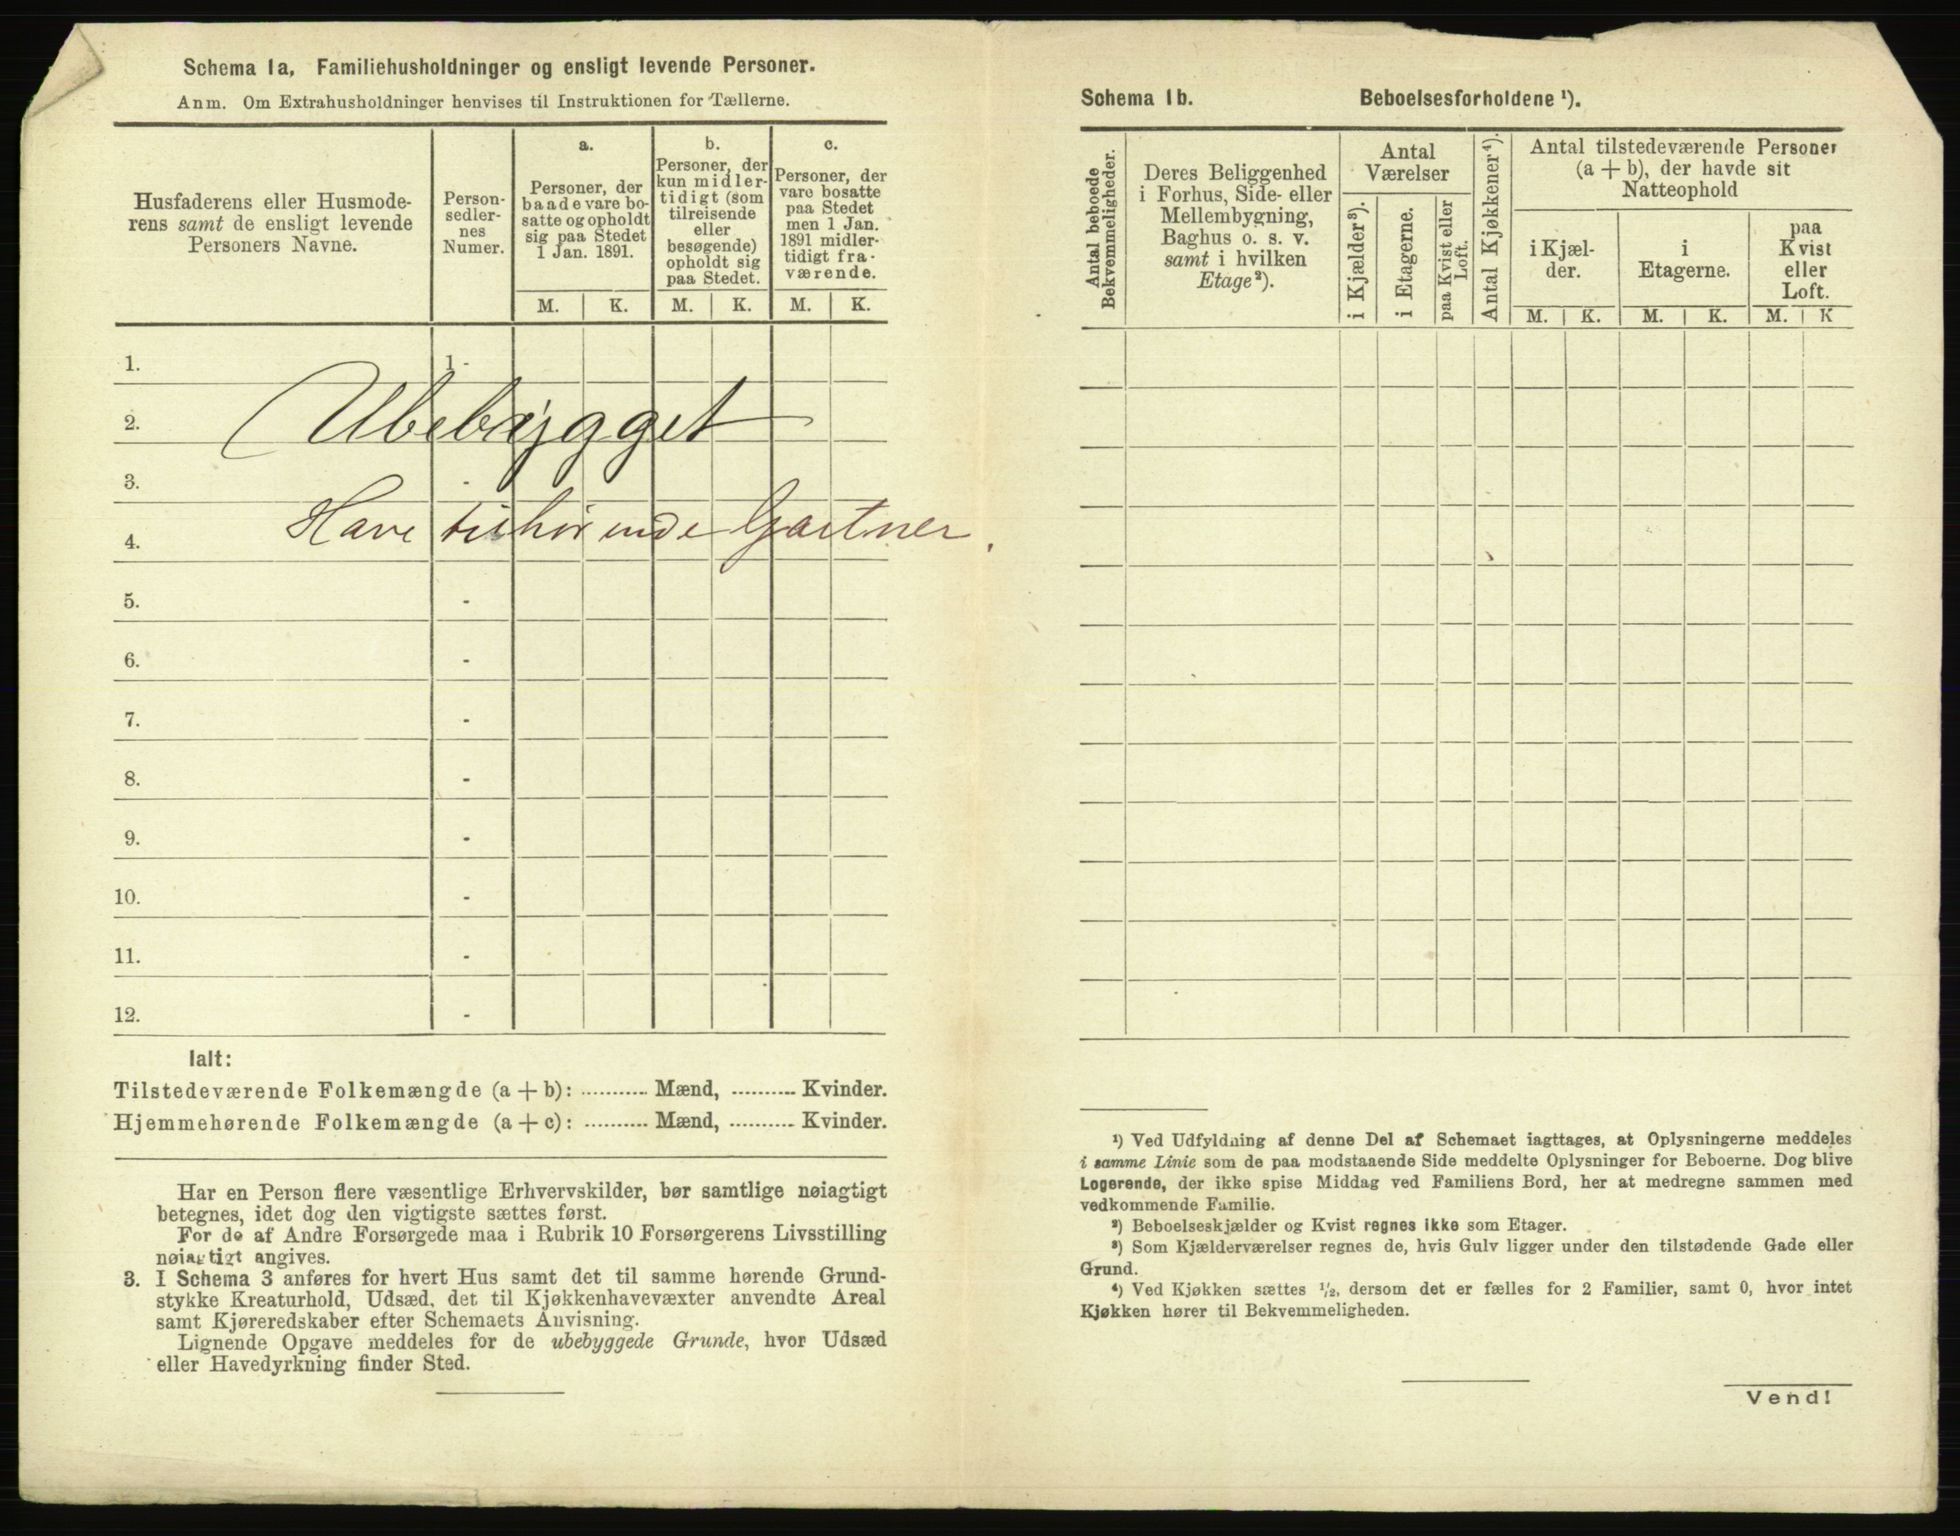 Schema 1a, Familiehusholdninger og ensligt levende Personer.
Anm. Om Extrahusholdninger henvises til Instruktionen for Tællerne.
Husfaderens eller Husmode-
rens samt de ensligt levende
Personers Navne.
Person-
sedler-
nes
Numer.
a.
Personer, der
baade vare bo-
satte og opholdt
sig paa Stedet
1 Jan. 1891.
b.
Personer, der
kun midler-
tidigt (som
tilreisende
eller
besøgende)
opholdt sig
paa Stedet.
c.
Personer, der
vare bosatte
paa Stedet
men 1 Jan.
1891 midler-
tidigt fra-
værende.
M. K. M. K. M. K.
1. 1 -
2. Ubebygget
3. -
4. Have tilhørende Gartner.
5. -
6. -
7. -
8. -
9. -
10. -
11. -
12. -
Ialt:
Tilstedeværende Folkemængde (a + b): .......... Mænd, .......... Kvinder.
Hjemmehørende Folkemængde (a + c): .......... Mænd, .......... Kvinder.
Har en Person flere væsentlige Erhvervskilder, bør samtlige nøiagtigt
betegnes, idet dog den vigtigste sættes først.
For de af Andre Forsørgede maa i Rubrik 10 Forsørgerens Livsstilling
nøiagtigt angives.
3. I Schema 3 anføres for hvert Hus samt det til samme hørende Grund-
stykke Kreaturhold, Udsæd, det til Kjøkkenhavevæxter anvendte Areal
samt Kjøreredskaber efter Schemaets Anvisning.
Lignende Opgave meddeles for de ubebyggede Grunde, hvor Udsæd
eller Havedyrkning finder Sted.
Schema 1b. Beboelsesforholdene ¹).
Antal beboede
Bekvemmeligheder.
Deres Beliggenhed
i Forhus, Side- eller
Mellembygning,
Baghus o. s. v.
samt i hvilken
Etage²).
Antal
Værelser
i Kjælder³).
i Etagerne.
paa Kvist eller
Loft.
Antal Kjøkkener⁴).
Antal tilstedeværende Personer
(a + b), der havde sit
Natteophold
i Kjæl-
der.
i
Etagerne.
paa
Kvist
eller
Loft.
M. K. M. K. M. K
¹) Ved Udfyldning af denne Del af Schemaet iagttages, at Oplysningerne meddeles
i samme Linie som de paa modstaaende Side meddelte Oplysninger for Beboerne. Dog blive
Logerende, der ikke spise Middag ved Familiens Bord, her at medregne sammen med
vedkommende Familie.
²) Beboelseskjælder og Kvist regnes ikke som Etager.
³) Som Kjælderværelser regnes de, hvis Gulv ligger under den tilstødende Gade eller
Grund.
⁴) Ved Kjøkken sættes ½, dersom det er fælles for 2 Familier, samt 0, hvor intet
Kjøkken hører til Bekvemmeligheden.
Vend!